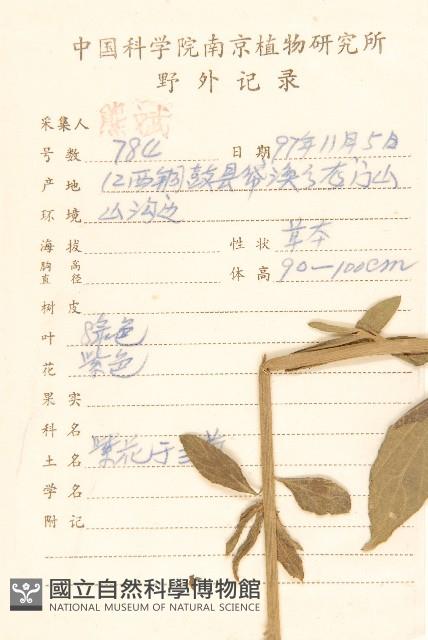 中国科学院南京植物研究所
野外记录
采集人 熊斌
号数 784 日期 97年11月5日
产地 江西铜鼓县 山
环境 山沟边
海拔 性状 草本
胸高直径 体高 90—100cm
树皮
叶 绿色
花 紫色
果实
科名
土名 紫花
学名
附记
國立自然科學博物館
NATIONAL MUSEUM OF NATURAL SCIENCE